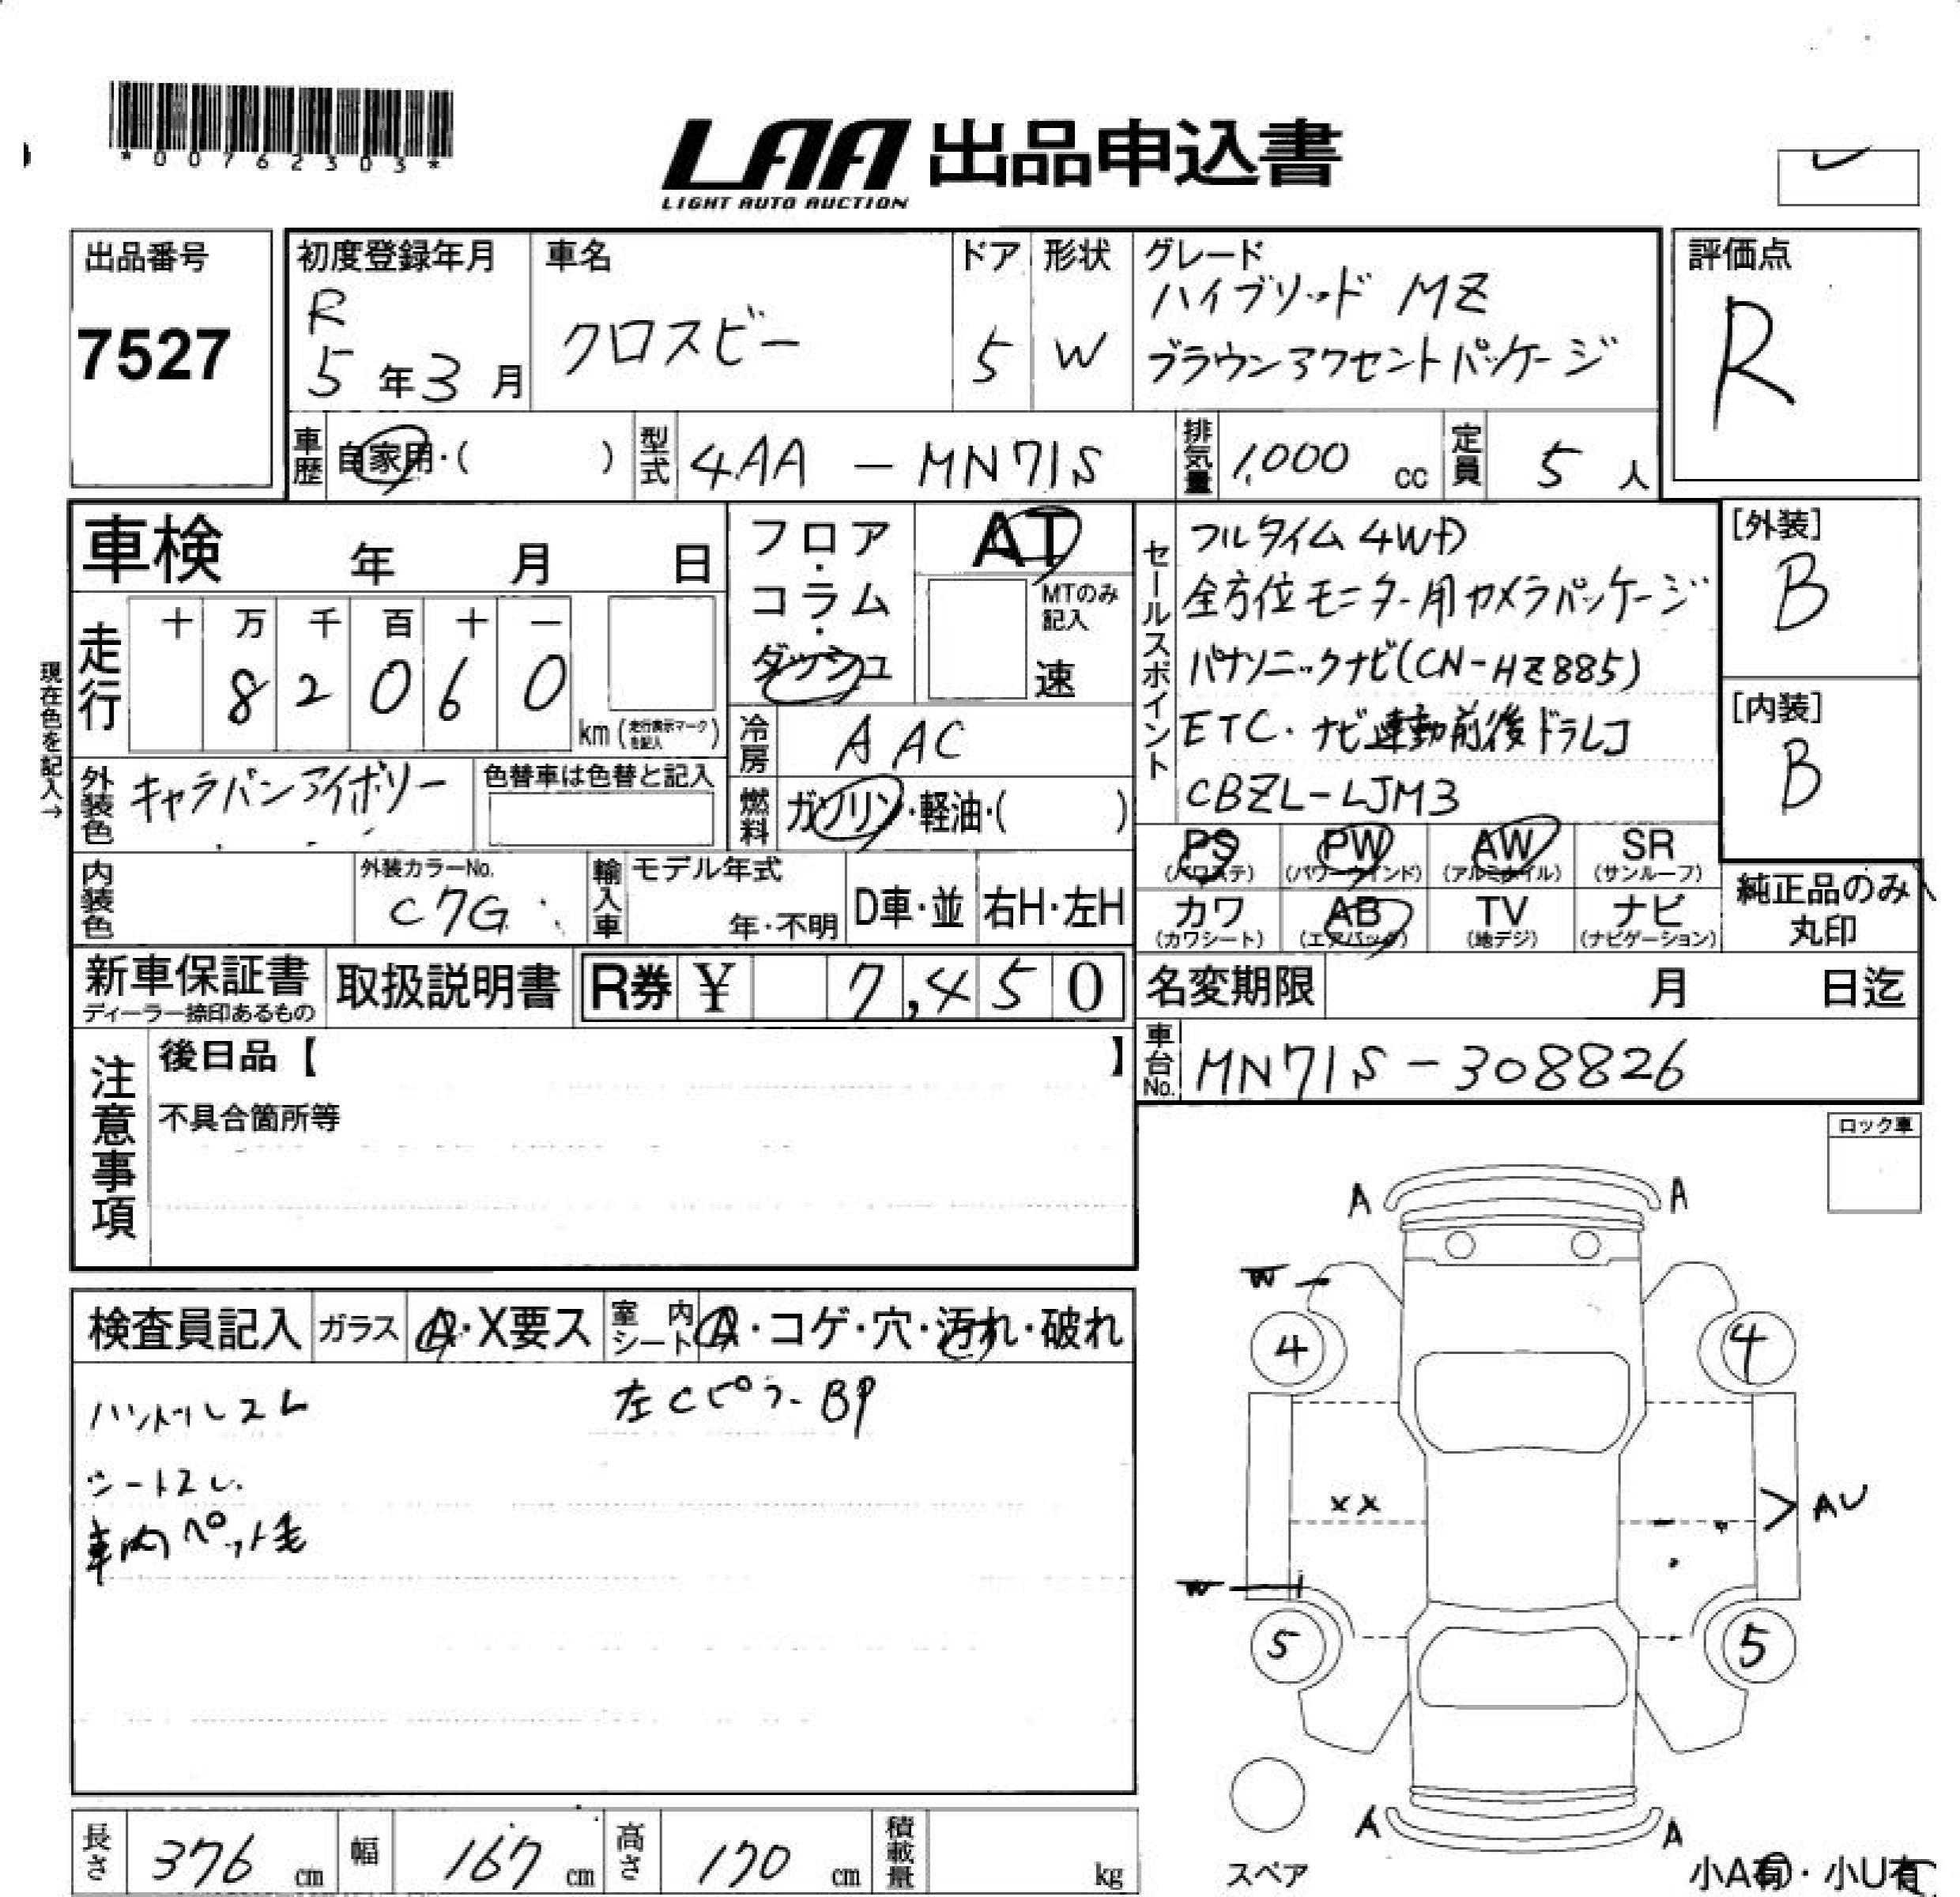 *00762303*
LAA 出品申込書
LIGHT AUTO AUCTION
出品番号
7527
初度登録年月
R
5年3月
車名
クロスビー
ドア
5
形状
W
グレード
ハイブリッド MZ
ブラウンアクセントパッケージ
評価点
R
車歴 自家用・( )
型式 4AA - MN71S
排気量 1,000 cc
定員 5 人
車検 年 月 日
走行
十 万 千 百 十 一
8 2 0 6 0
km(走行表示マークを記入)
現在色を記入→
外装色 キャラバンアイボリー
色替車は色替と記入
内装色
外装カラーNo.
C7G
輸入車
モデル年式
年・不明
D車・並
右H・左H
フロア・コラム・ダッシュ
AT
MTのみ記入
速
冷房 AAC
燃料 ガソリン・軽油・( )
セールスポイント
フルタイム4WD
全方位モニター用カメラパッケージ
パナソニックナビ(CN-HZ885)
ETC・ナビ連動前後ドラレコ
CBZL-LJM3
[外装]
B
[内装]
B
PS (パワステ)
PW (パワーウインド)
AW (アルミホイル)
SR (サンルーフ)
カワ (カワシート)
AB (エアバッグ)
TV (地デジ)
ナビ (ナビゲーション)
純正品のみ
丸印
新車保証書
ディーラー捺印あるもの
取扱説明書
R券 ¥ 7,450
名変期限 月 日迄
車台No. MN71S-308826
注意事項
後日品【 】
不具合箇所等
ロック車
検査員記入
ガラス A・X要ス
室内シート A・コゲ・穴・汚れ・破れ
ハンドルスレ
左Cピラー BP
シートスレ
車内ペット毛
A A
W
4 4
XX
AU
W
5 5
A A
スペア
小A有・小U有
長さ 376 cm
幅 167 cm
高さ 170 cm
積載量 kg